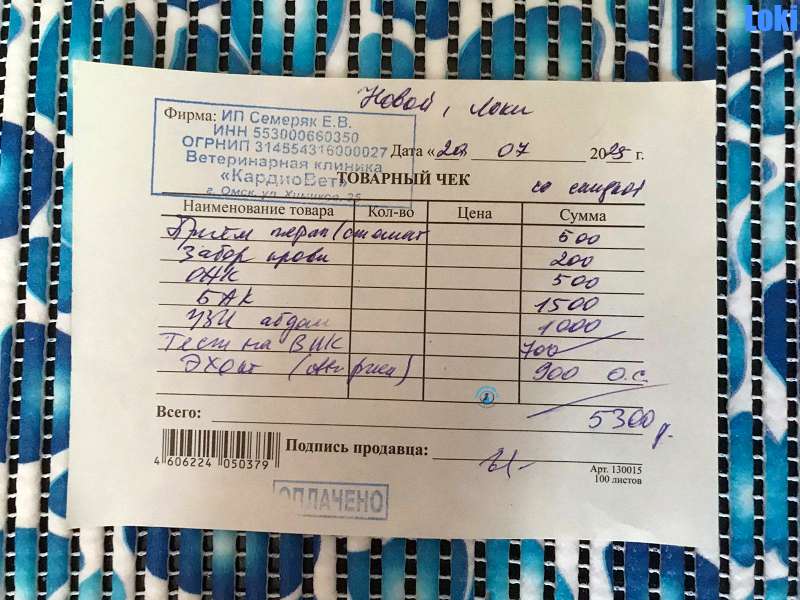 Loki
Новой, Локи
Фирма: ИП Семеряк Е.В.
ИНН 553000660350
ОГРНИП 314554316000027
Дата «20» 07 2025 г.
Ветеринарная клиника
«КардиоВет»
ТОВАРНЫЙ ЧЕК
со скидкой
г. Омск, ул. 25
Наименование товара Кол-во Цена Сумма
Приём 500
Забор крови 200
ОАК 500
БАК 1500
УЗИ абдом 1000
Тест на ВИК 700
ЭХО 900 О.С.
Всего: 5300 р.
4 606224 050379
Подпись продавца:
Арт. 130015
100 листов
ОПЛАЧЕНО